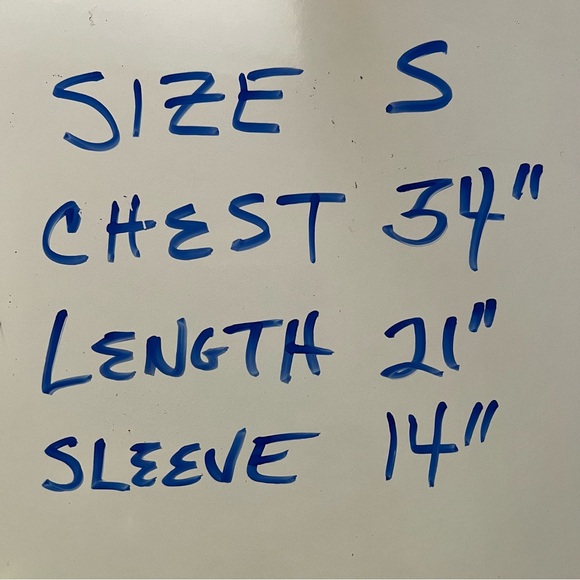 SIZE S
CHEST 34"
LENGTH 21"
SLEEVE 14"